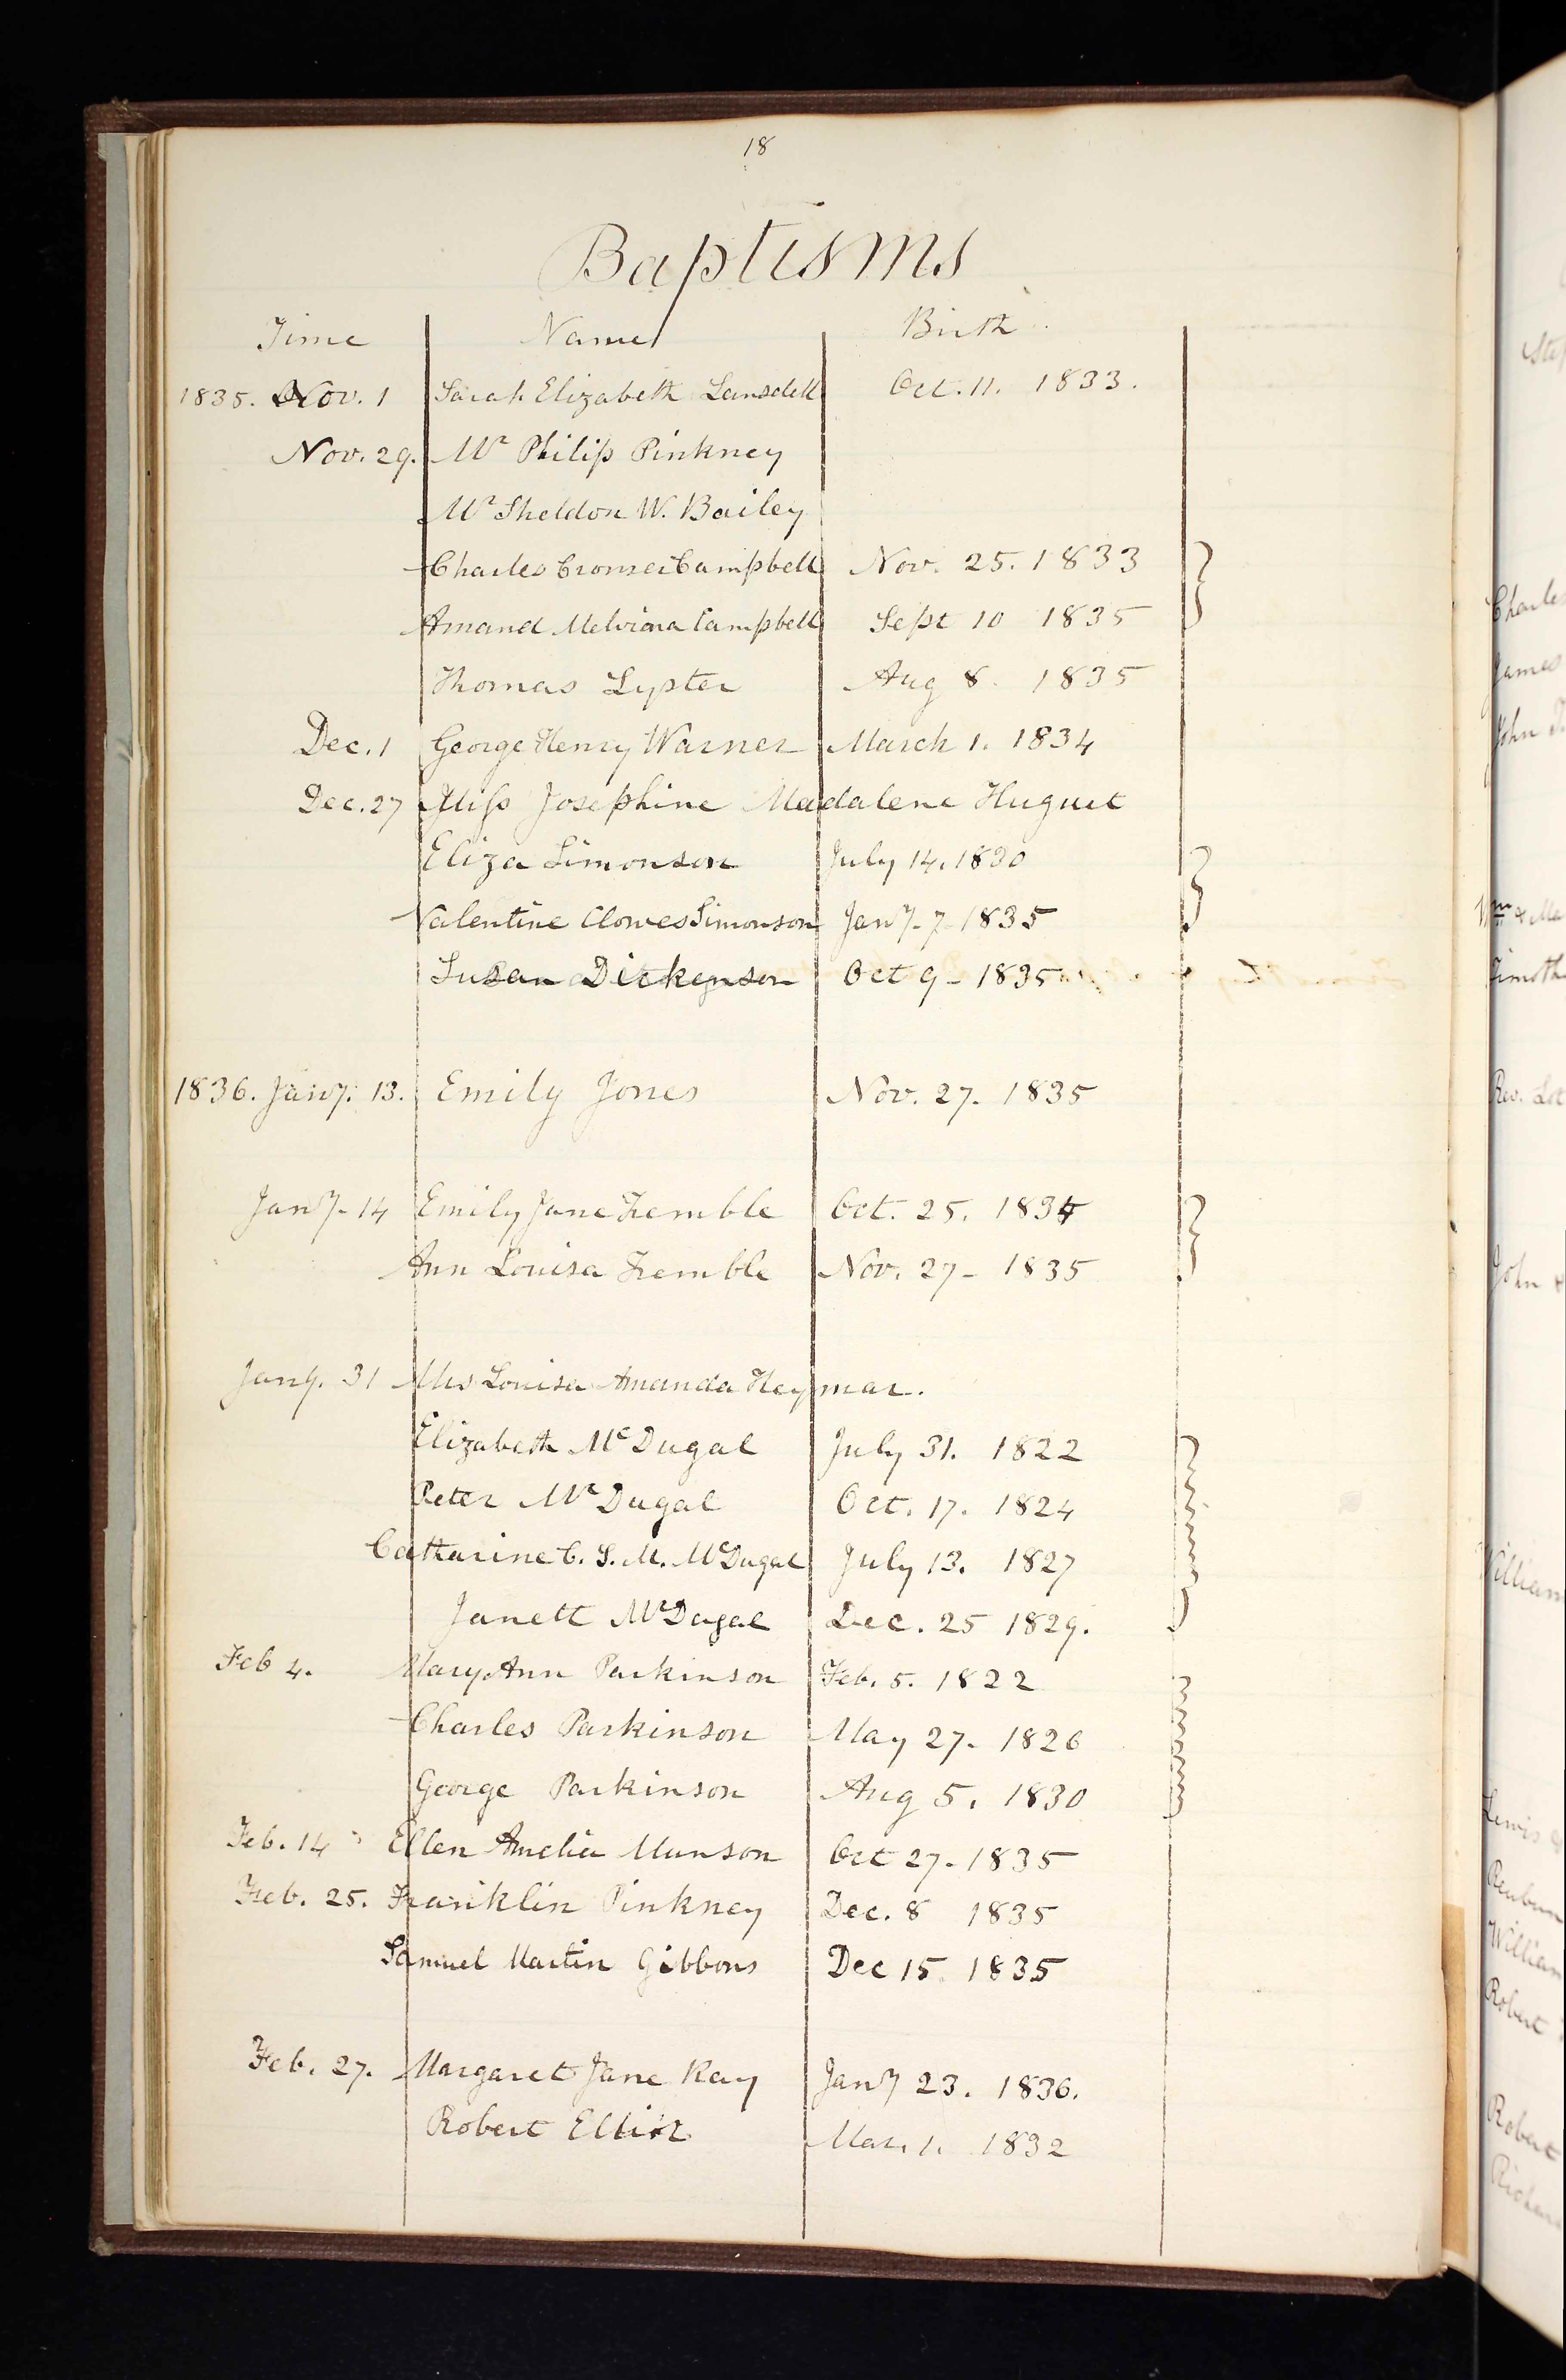 18
Baptisms
Time Name Birth
1835. Nov. 1 Sarah Elizabeth Lansdell Oct. 11. 1833.
Nov. 29. Mr Philip Pinkney
Mr Sheldon W. Bailey
Charles Cronser Campbell Nov. 25. 1833
Amand Melvina Campbell Sept 10 1835
Thomas Lyster Aug 8. 1835
Dec. 1 George Henry Warner March 1. 1834
Dec. 27 Miss Josephine Madalene Huguet
Eliza Simonson July 14. 1830
Valentine Clowes Simonson Jany. 7 1835
Susan Dickenson Oct 9 - 1835
1836. Jany. 13. Emily Jones Nov. 27. 1835
Jany - 14 Emily Jane Tremble Oct. 25. 1834
Ann Louisa Tremble Nov. 27 - 1835
Jany. 31 Mrs Louisa Amanda Heymar.
Elizabeth McDugal July 31. 1822
Peter McDugal Oct. 17. 1824
Catharine C. S. M. McDugal July 13. 1827
Janett McDugal Dec. 25 1829.
Feb 4. Mary Ann Parkinson Feb. 5. 1822
Charles Parkinson May 27. 1826
George Parkinson Aug 5. 1830
Feb. 14 Ellen Amelia Munson Oct 27. 1835
Feb. 25. Franklin Pinkney Dec. 8 1835
Samuel Martin Gibbons Dec 15. 1835
Feb. 27. Margaret Jane Kay Jany 23. 1836.
Robert Elliot Mar. 1. 1832
Charles
James
John
Wm & Ma
Timoth
Rev. Lot
John &
William
Lewis &
Reuben
William
Robert
Robert
Richar